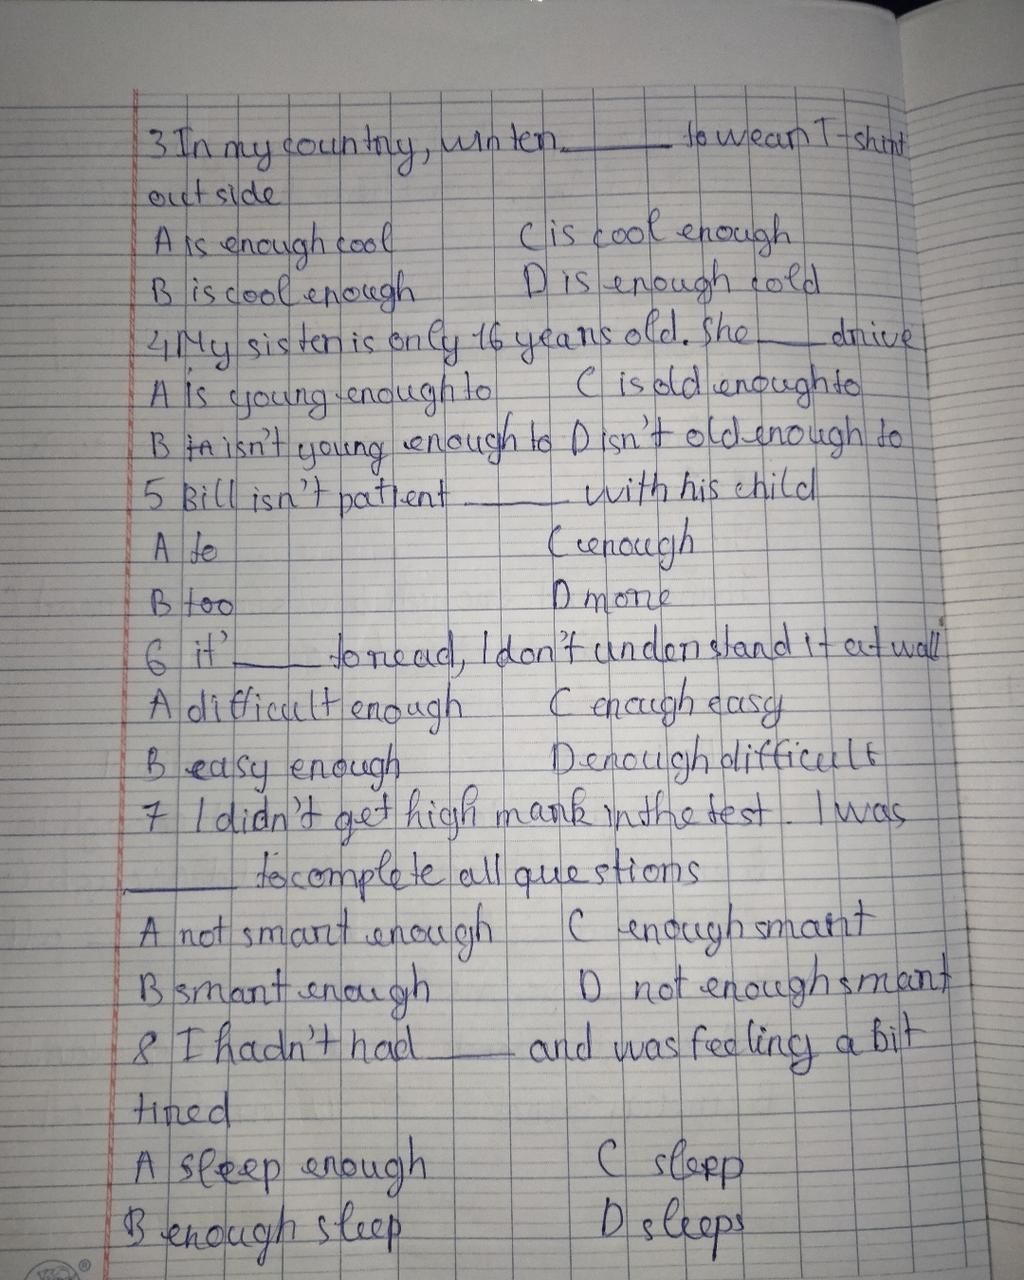 3 In my country, winter ______ to wear T-shirt
outside
A is enough cool C is cool enough
B is cool enough D is enough cold
4 My sister is only 16 years old. She ____ drive
A is young enough to C is old enough to
B isn't young enough to D isn't old enough to
5 Bill isn't patient ______ with his child
A to C enough
B too D more
6 it' ____ to read, I don't understand it at wall
A difficult enough C enough easy
B easy enough D enough difficult
7 I didn't get high mark in the test. I was
______ to complete all questions
A not smart enough C enough smart
B smart enough D not enough smart
8 I hadn't had ____ and was feeling a bit
tired
A sleep enough C sleep
B enough sleep D sleeps